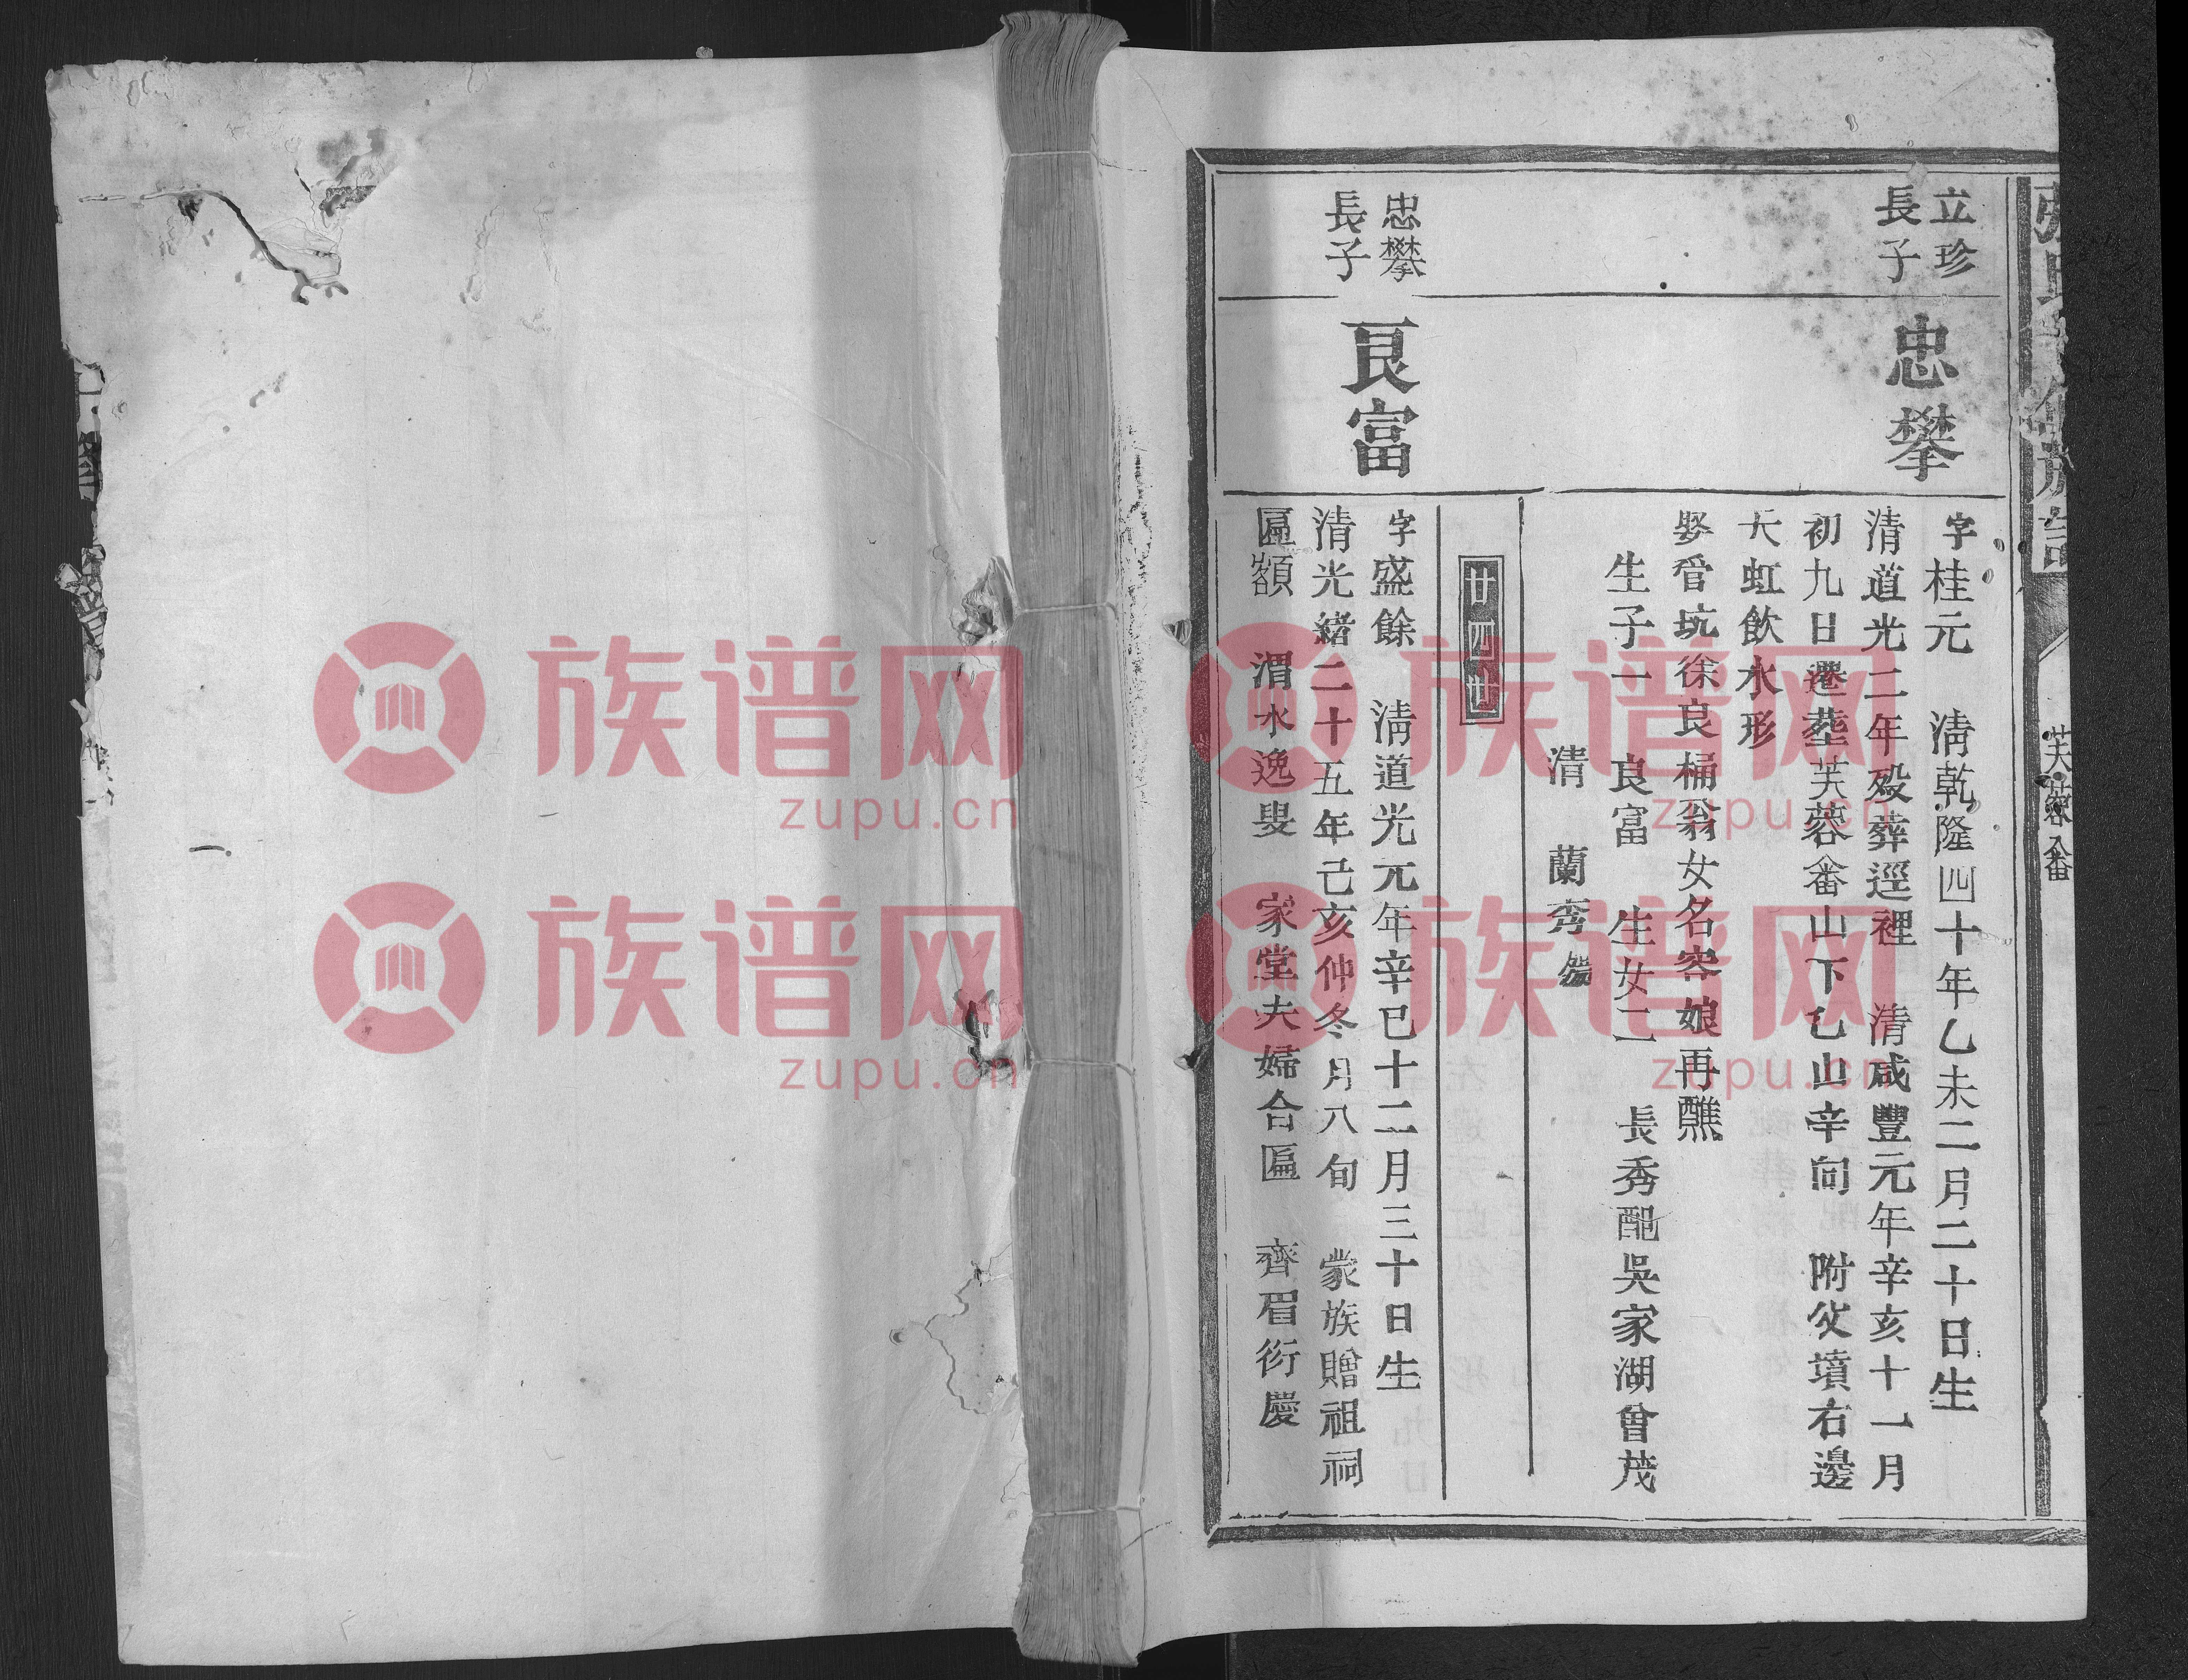 芙蓉畲
立珍
長子
忠攀
字桂元 清乾隆四十年乙未二月二十日生
清道光二年歿葬逕裡 清咸豐元年辛亥十一月
初九日遷塟芙蓉畲山下乙山辛向 附父墳右邊
天虹飲水形
娶官坑徐良桶翁女名容娘再醮
生子一 良富 生女二 長秀配吳家湖曾茂
清 蘭秀
廿四世
忠攀
長子
良富
字盛餘 清道光元年辛巳十二月三十日生
清光緒二十五年己亥仲冬月八旬 蒙族贈祖祠
匾額 渭水逸叟 家堂夫婦合匾 齊眉衍慶
族谱网
zupu.cn
族谱网
zupu.cn
族谱网
zupu.cn
族谱网
zupu.cn